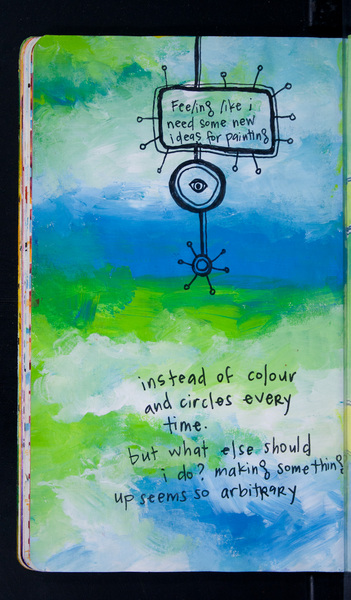 Feeling like i
need some new
ideas for painting
instead of colour
and circles every
time.
but what else should
i do? making something
up seems so arbitrary